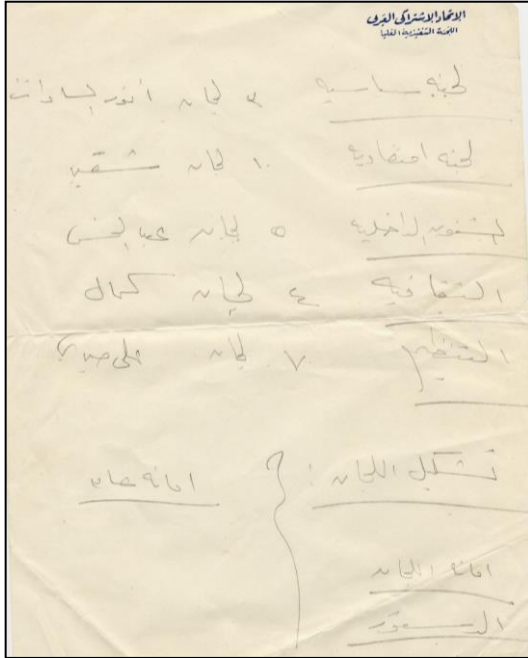 الاتحاد الاشتراكى العربى
اللجنة التنفيذية العليا
لجنه سياسيه ٣ لجان أنور السادات
لجنه اقتصاديه ١٠ لجان شقير
الشئون الداخليه ٥ لجان عبد المحسن
الثقافيه ٤ لجان كمال
التنظيم ٧ لجان على صبرى
تشكيل اللجان : امانه عامه
امانه اللجان
الدستور